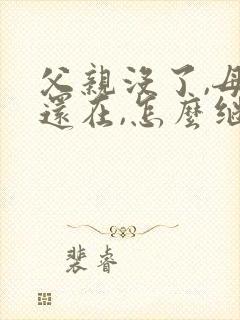 父親沒了,母
還在,怎麼繼
裴睿